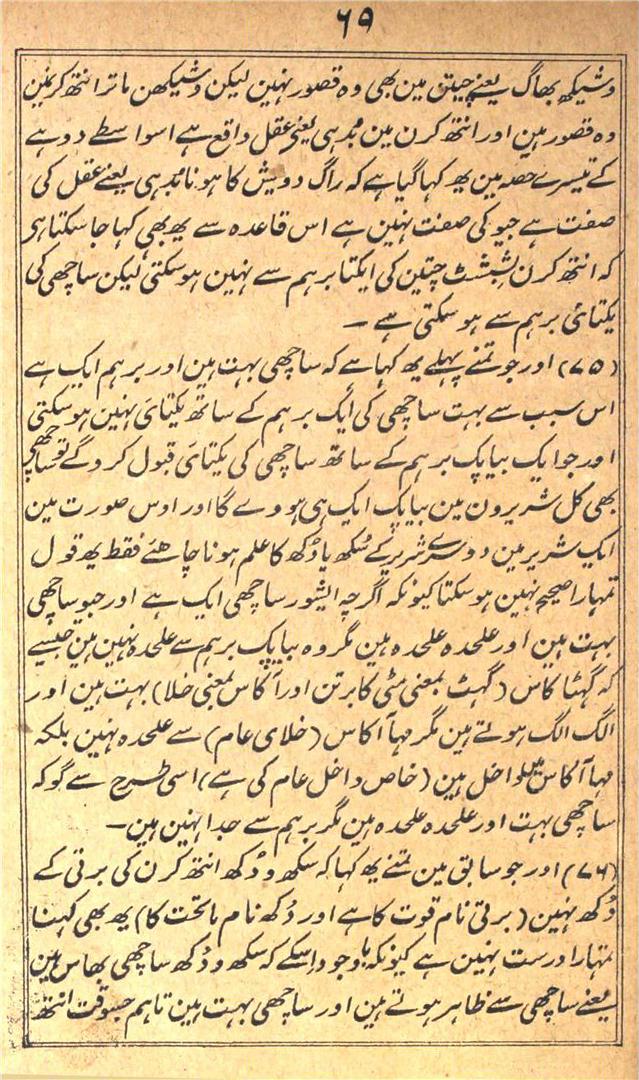 ٦٩
وشیکھ بھاگ یعنے چیتن مین بھی وہ قصور نہین لیکن وشیکھن ماتر انتھ کرنمین
وہ قصور ہین اور انتھ کرن مین بُدہی یعنی عقل واقع ہے اسواسطے دوہے
کے تیسرے حصہ مین یھ کہا گیا ہے کہ راگ دویش کا ہونا بُدہی یعنے عقل کی
صفت ہے جیو کی صفت نہین ہے اس قاعدہ سے یھ بھی کہا جا سکتا ہی
کہ انتھ کرن بشِشٹ چتین کی ایکتا برہم سے نہین ہوسکتی لیکن ساچھی کی
یکتائی برہم سے ہو سکتی ہے ۔
(۷۵) اور جو تمنے پہلے یھ کہا ہے کہ ساچھی بہت ہین اور برہم ایک ہے
اس سبب سے بہت ساچھی کی ایک برہم کے ساتھ یکتائ نہین ہوسکتی
اور جو ایک بیاپک برہم کے ساتھ ساچھی کی یکتائ قبول کروگے تو ساچھی
بھی کل شریرون مین بیاپک ایک ہی ہووے گا اور اوس صورت مین
ایک شریر مین دوسرے شریر کے سُکھ یا دُکھ کا علم ہونا چاھئے فقط یھ قول
تمہارا صحیح نہین ہوسکتا کیونکہ اگرچہ ایشور ساچھی ایک ہے اور جیو ساچھی
بہت ہین اور علحدہ علحدہ ہین مگر وہ بیاپک برہم سے علحدہ نہین ہین جیسے
کہ گہٹا کاس (گہٹ بمعنی مٹی کا برتن اور آکاس بمعنی خلا) بہت ہین اور
الگ الگ ہوتے ہین مگر مہا آکاس (خلای عام) سے علحدہ نہین بلکہ
مہا آکاس مین داخل ہین (خاص داخل عام کی ہے) اسی طرح سے گو کہ
ساچھی بہت اور علحدہ علحدہ ہین مگر برہم سے جدا نہین ہین۔
(۷۶) اور جو سابق مین تمنے یھ کہا کہ سکھ و دُکھ انتھ کرن کی برتی کے
دُکھ نہین (برتی نام قوت کا ہے اور دُکھ نام ماتحت کا) یھ بھی کہنا
تمہارا درست نہین ہے کیونکہ باوجود اِسکے کہ سکھ و دُکھ ساچھی بھاس ہین
یعنے ساچھی سے ظاہر ہوتے ہین اور ساچھی بہت ہین تاہم جسوقت انتھ